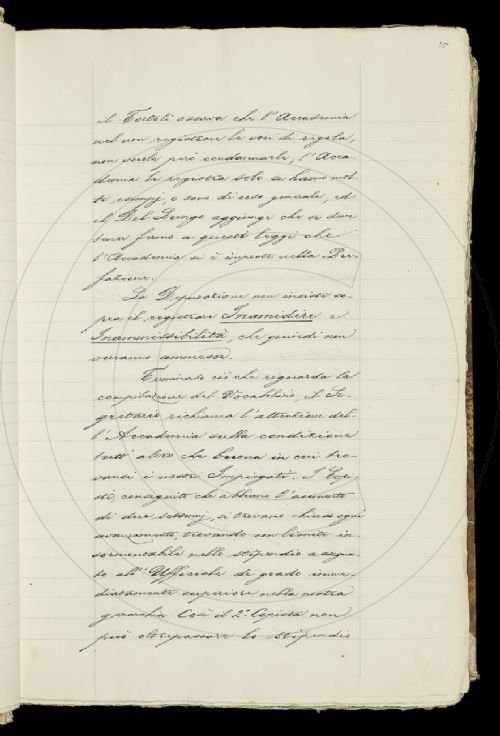 25
il Tortoli osserva che l'Accademia
nel non registrare le voci di regola,
non vuole però condannarle; l'Acca-
demia le registra solo se hanno mol-
ti esempj, o sono di uso generale, ed
il Del Lungo aggiunge che si deve
tener fermo a queste leggi che
l'Accademia si è imposte nella Pre-
fazione.
La Deputazione non insiste so-
pra il registrare Inamidire e
Inammissibilità, che quindi non
verranno ammesse.
Terminato ciò che riguarda la
compilazione del Vocabolario, il Se-
gretario richiama l'attenzione del-
l'Accademia sulla condizione
tutt'altro che buona in cui tro-
vansi i nostri Impiegati. I Copi-
sti, conseguito che abbiano l'aumento
di due sessenj, si trovano chiuso ogni
avanzamento, trovando un limite in-
sormontabile nello stipendio assegna-
to all'Uffiziale di grado imme-
diatamente superiore nella nostra
gerarchia. Così il 2º Copista non
può oltrepassare lo stipendio